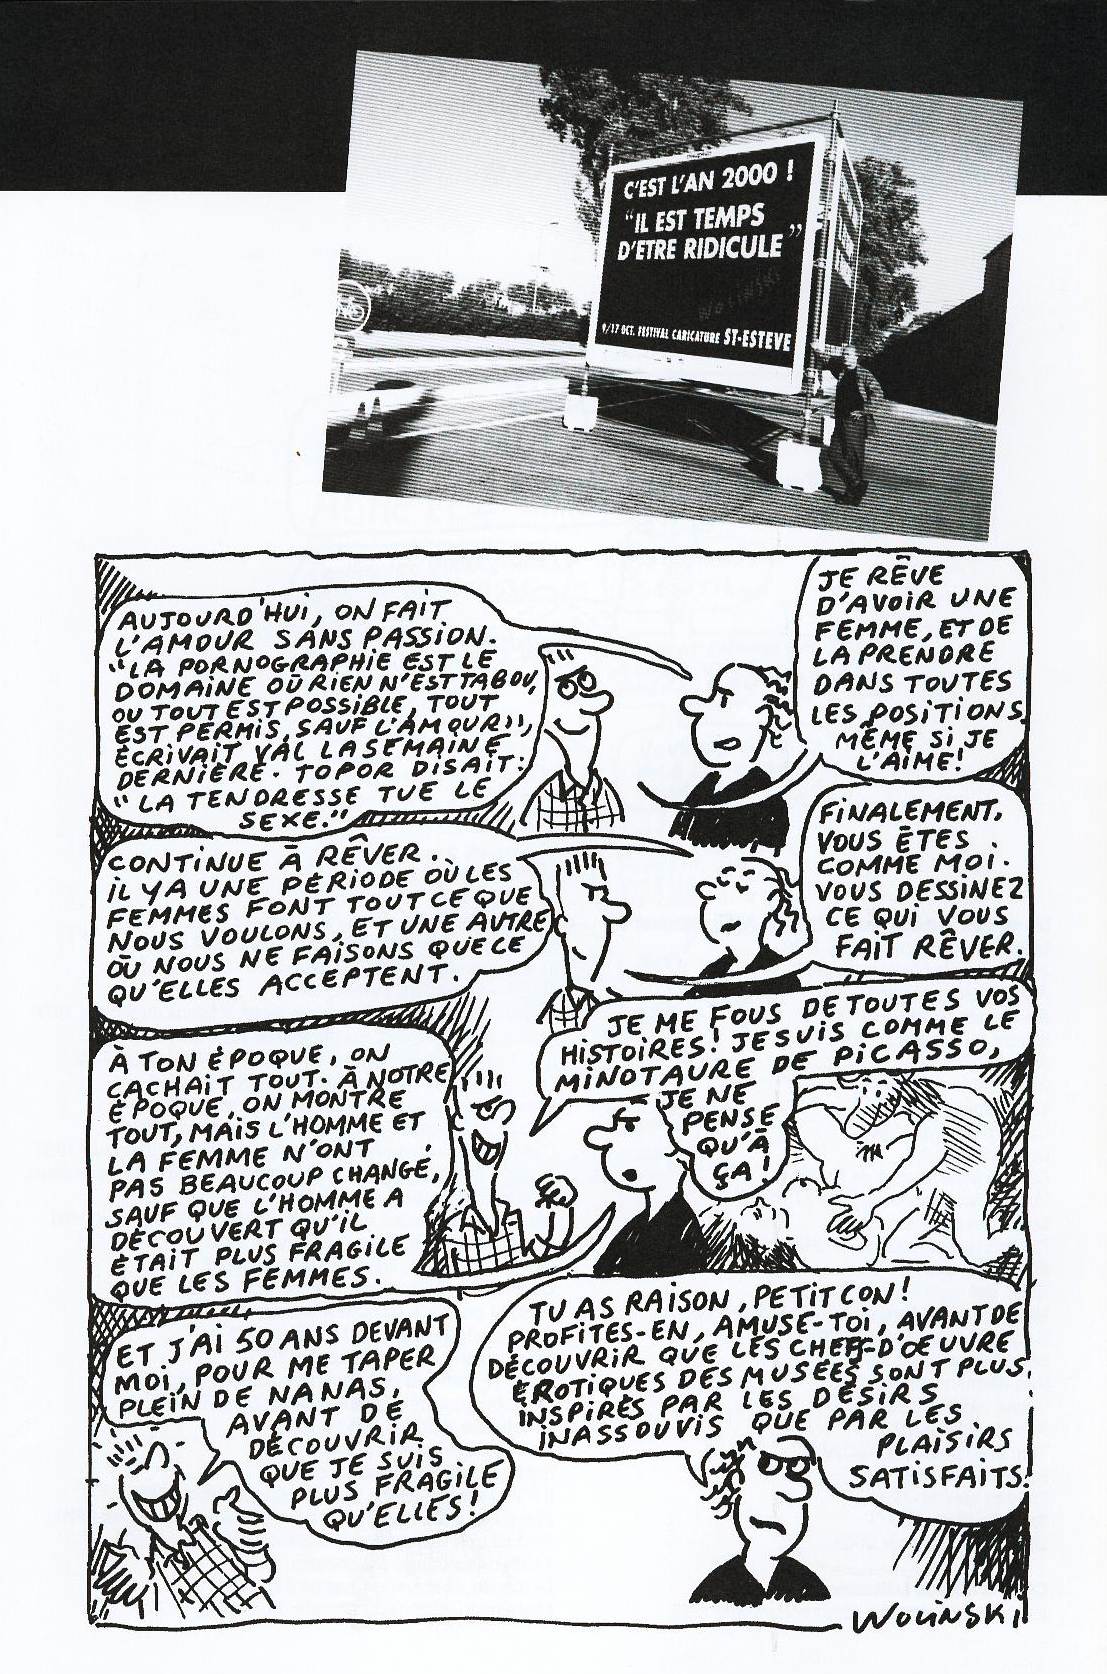 C'EST L'AN 2000 !
"IL EST TEMPS
D'ETRE RIDICULE"
WOLINSKI
9/17 OCT. FESTIVAL CARICATURE ST-ESTEVE
AUJOURD'HUI, ON FAIT
L'AMOUR SANS PASSION.
"LA PORNOGRAPHIE EST LE
DOMAINE OÙ RIEN N'EST TABOU,
OU TOUT EST POSSIBLE, TOUT
EST PERMIS, SAUF L'AMOUR",
ÉCRIVAIT VAL LA SEMAINE
DERNIÈRE. TOPOR DISAIT:
"LA TENDRESSE TUE LE
SEXE."
JE RÊVE
D'AVOIR UNE
FEMME, ET DE
LA PRENDRE
DANS TOUTES
LES POSITIONS,
MÊME SI JE
L'AIME!
CONTINUE À RÊVER.
IL Y A UNE PÉRIODE OÙ LES
FEMMES FONT TOUT CE QUE
NOUS VOULONS, ET UNE AUTRE
OÙ NOUS NE FAISONS QUE CE
QU'ELLES ACCEPTENT.
FINALEMENT,
VOUS ÊTES
COMME MOI.
VOUS DESSINEZ
CE QUI VOUS
FAIT RÊVER.
À TON ÉPOQUE, ON
CACHAIT TOUT. À NOTRE
ÉPOQUE, ON MONTRE
TOUT, MAIS L'HOMME ET
LA FEMME N'ONT
PAS BEAUCOUP CHANGÉ,
SAUF QUE L'HOMME A
DÉCOUVERT QU'IL
ÉTAIT PLUS FRAGILE
QUE LES FEMMES.
JE ME FOUS DE TOUTES VOS
HISTOIRES! JE SUIS COMME LE
MINOTAURE DE PICASSO,
JE NE
PENSE
QU'À
ÇA!
ET J'AI 50 ANS DEVANT
MOI, POUR ME TAPER
PLEIN DE NANAS,
AVANT DE
DÉCOUVRIR
QUE JE SUIS
PLUS FRAGILE
QU'ELLES!
TU AS RAISON, PETIT CON!
PROFITES-EN, AMUSE-TOI, AVANT DE
DÉCOUVRIR QUE LES CHEFS-D'OEUVRE
ÉROTIQUES DES MUSÉES SONT PLUS
INSPIRÉS PAR LES DÉSIRS
INASSOUVIS QUE PAR LES
PLAISIRS
SATISFAITS.
WOLINSKI